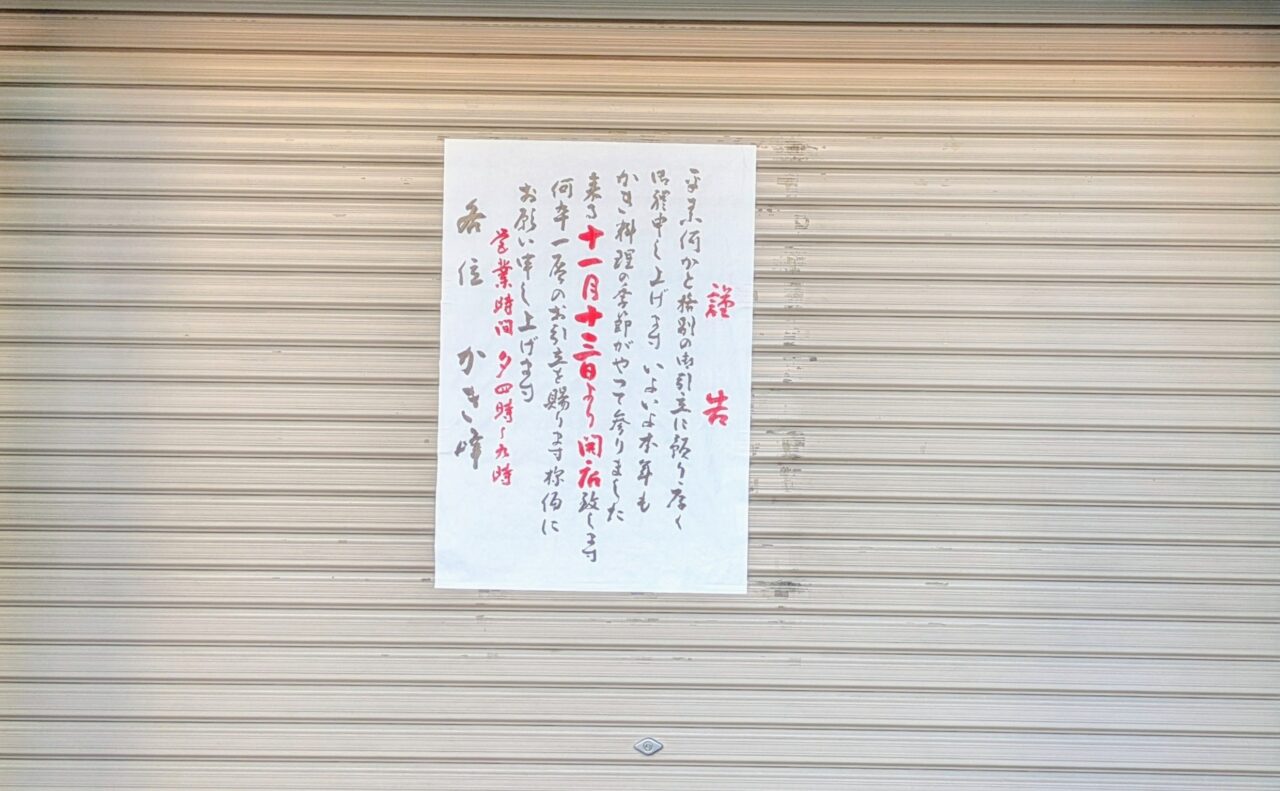 謹告
平素何かと格別の御引立に預り厚く
御禮申し上げます いよいよ本年も
かき料理の季節がやって参りました
来る十一月十三日より開店致します
何卒一層のお引立を賜ります様伏に
お願い申し上げます
営業時間 夕四時～九時
各位 かき峰